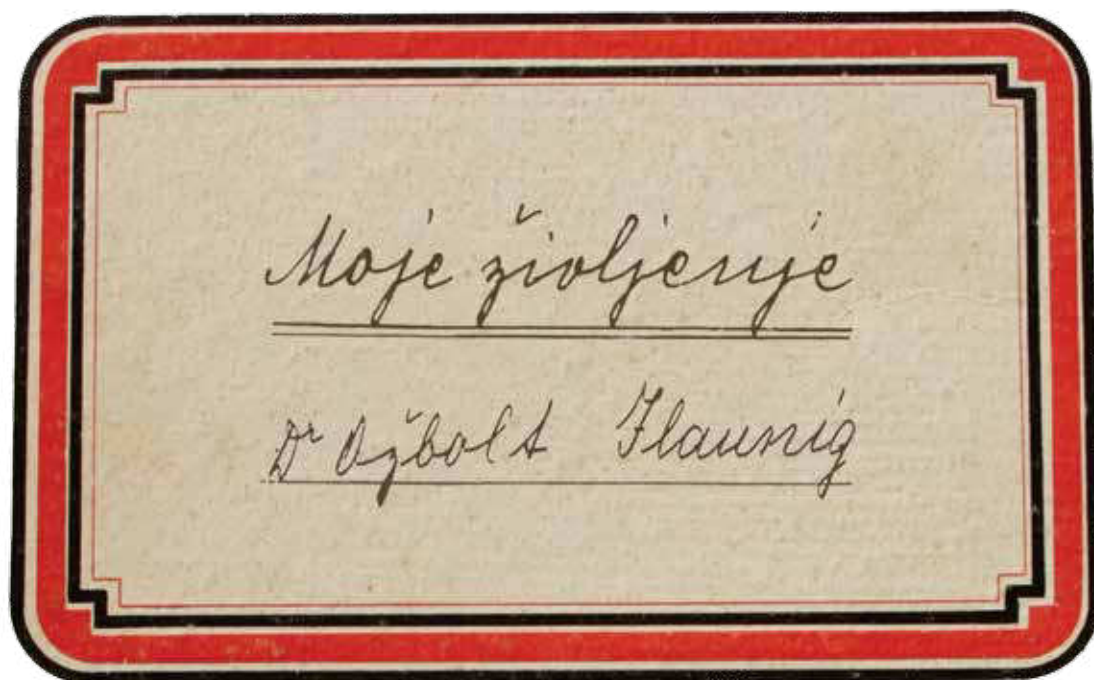 Moje življenje
Dr Ožbolt Ilaunig